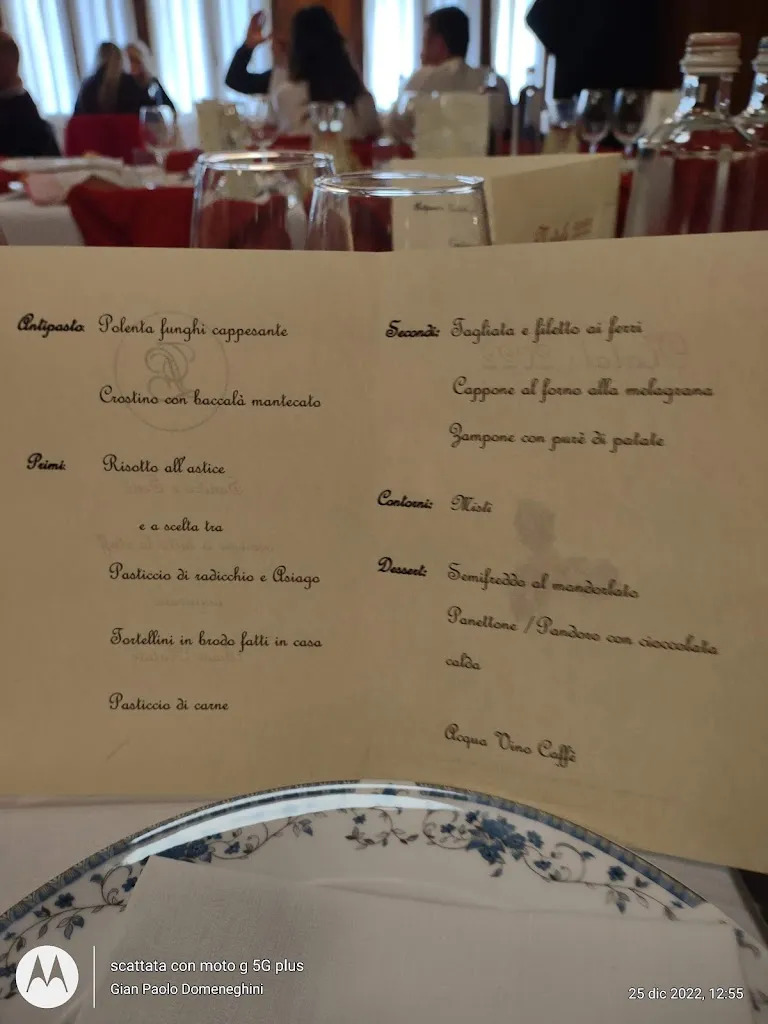 Antipasto: Polenta funghi cappesante
Crostino con baccalà mantecato
Primi: Risotto all'astice
e a scelta tra
Pasticcio di radicchio e Asiago
Tortellini in brodo fatti in casa
Pasticcio di carne
Secondi: Tagliata e filetto ai ferri
Cappone al forno alla melagrana
Zampone con purè di patate
Contorni: Misti
Dessert: Semifreddo al mandorlato
Panettone / Pandoro con cioccolata
calda
Acqua Vino Caffè
scattata con moto g 5G plus
Gian Paolo Domeneghini
25 dic 2022, 12:55